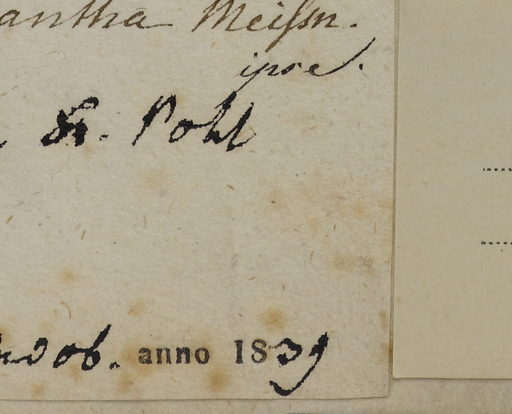 antha Meiſsn.
ipse.
Pohl
ndob. anno 1839